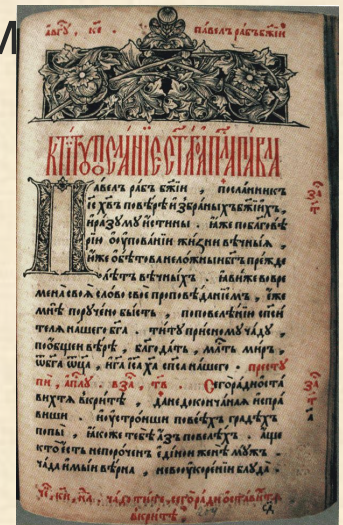 М
авгу , ке . павелъ рабъ бжїи
К ти́тꙋ посланїе стаго апла павла
Павелъ рабъ бжїи , посланникъ
їс хвъ повѣрѣ избраныхъ бжїихъ ,
иразуму истины . ꙗже поблаговѣ
рїю оуповании жизни вѣчныя ,
юже обѣтова неложныи бгъ прежде
лѣтъ вѣчныхъ . ꙗвиже вовре
мена своя слово свое проповѣданїемъ , еже
мнѣ поручено бысть , поповелѣнїю спси
теля нашего бга . титу присному чаду ,
пообщеи вѣрѣ , благодать , млть миръ ,
ѿ бга ѿца , и га іса ха спса нашего . престу
пи , аплу . Сегорадиоста
вихтя вкритѣ , данедокончаная испра
виши . иоустроиши повсѣхъ градѣхъ
попы , ꙗкоже тебѣ азъ повелѣхъ . аще
кто есть непороченъ единои женѣ мужъ .
чада имыи вѣрна , невоукоренїи блуда .
чадо тите , сегоради оставихтя
вкритѣ .